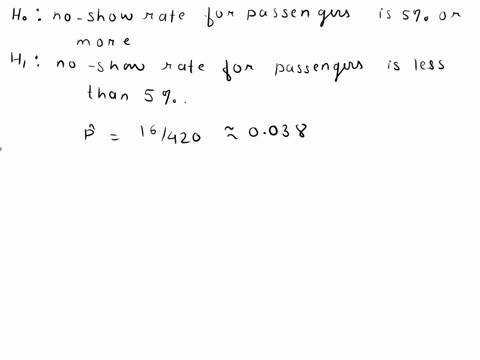 H₀ : no-show rate for passengers is 5% or
more
H₁ : no-show rate for passengers is less
than 5%.
p̂ = 16/420 ≈ 0.038